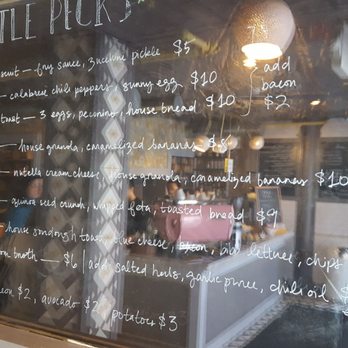 TLE PECK'S
scuit — fry sauce, zucchini pickle $5
— calabrese chili peppers, sunny egg $10
toast — 3 eggs, pecorino, house bread $10
add
bacon
$2
— house granola, caramelized bananas $8
— nutella cream cheese, house granola, caramelized bananas $10
— quinoa seed crunch, whipped feta, toasted bread $9
— house sourdough toast, blue cheese, bacon, lettuce, chips
broth — $6 | add, salted herbs, garlic puree, chili oil $
con $2, avocado $2, potatoes $3